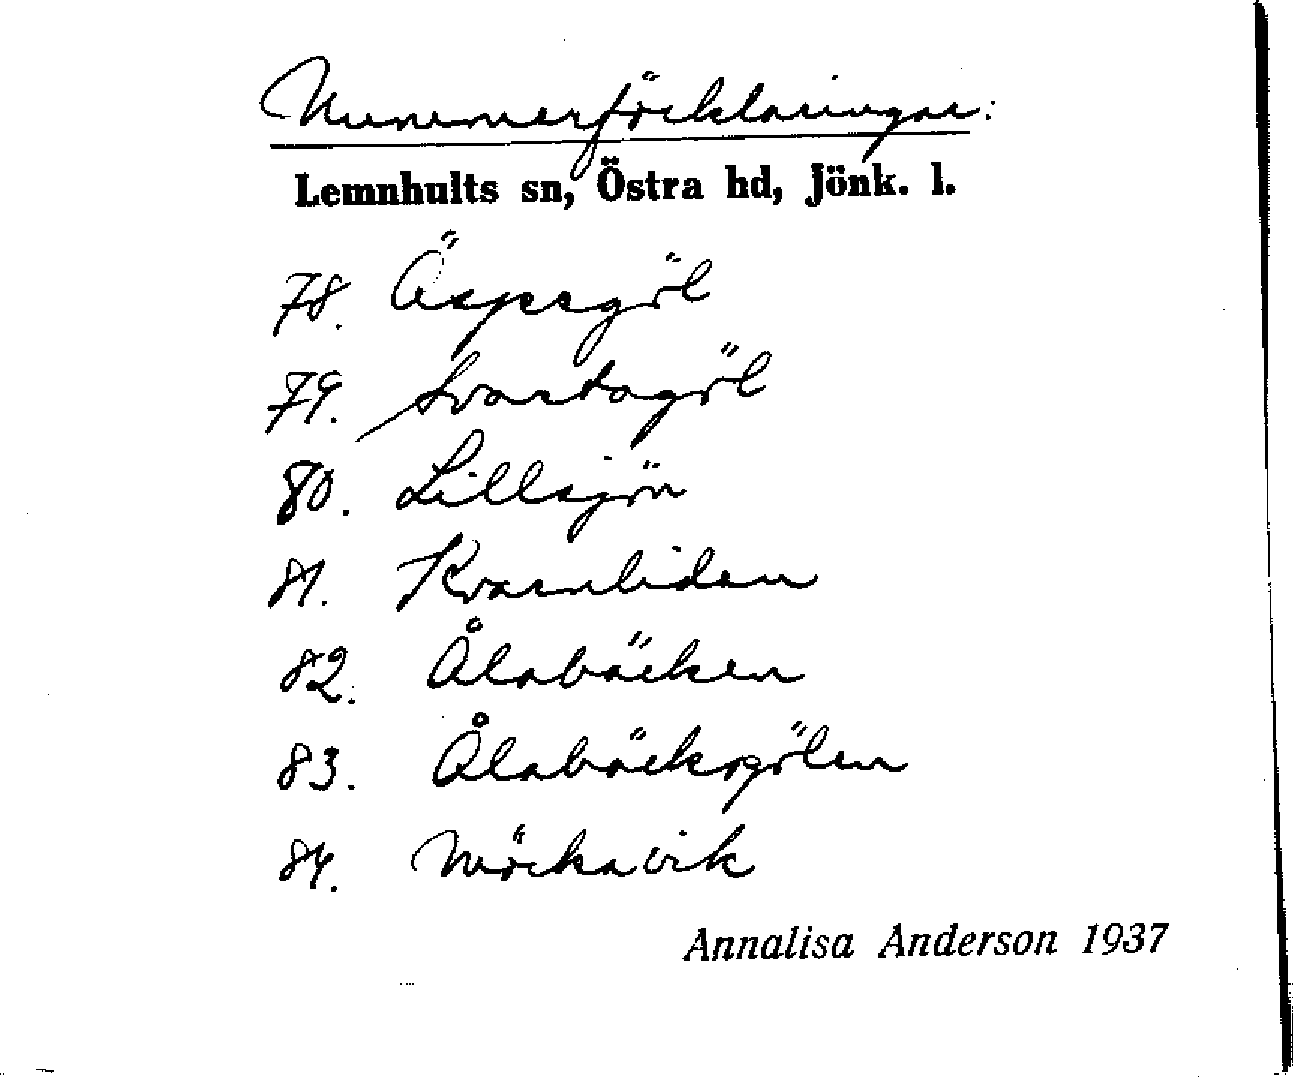 Nummerförklaringar:
Lemnhults sn, Östra hd, Jönk. l.
78. Äspegöl
79. Svartagöl
80. Lillsjön
81. Kvarnliden
82. Ålabäcken
83. Ålabäcksgölen
84. Mörkavik
Annalisa Anderson 1937